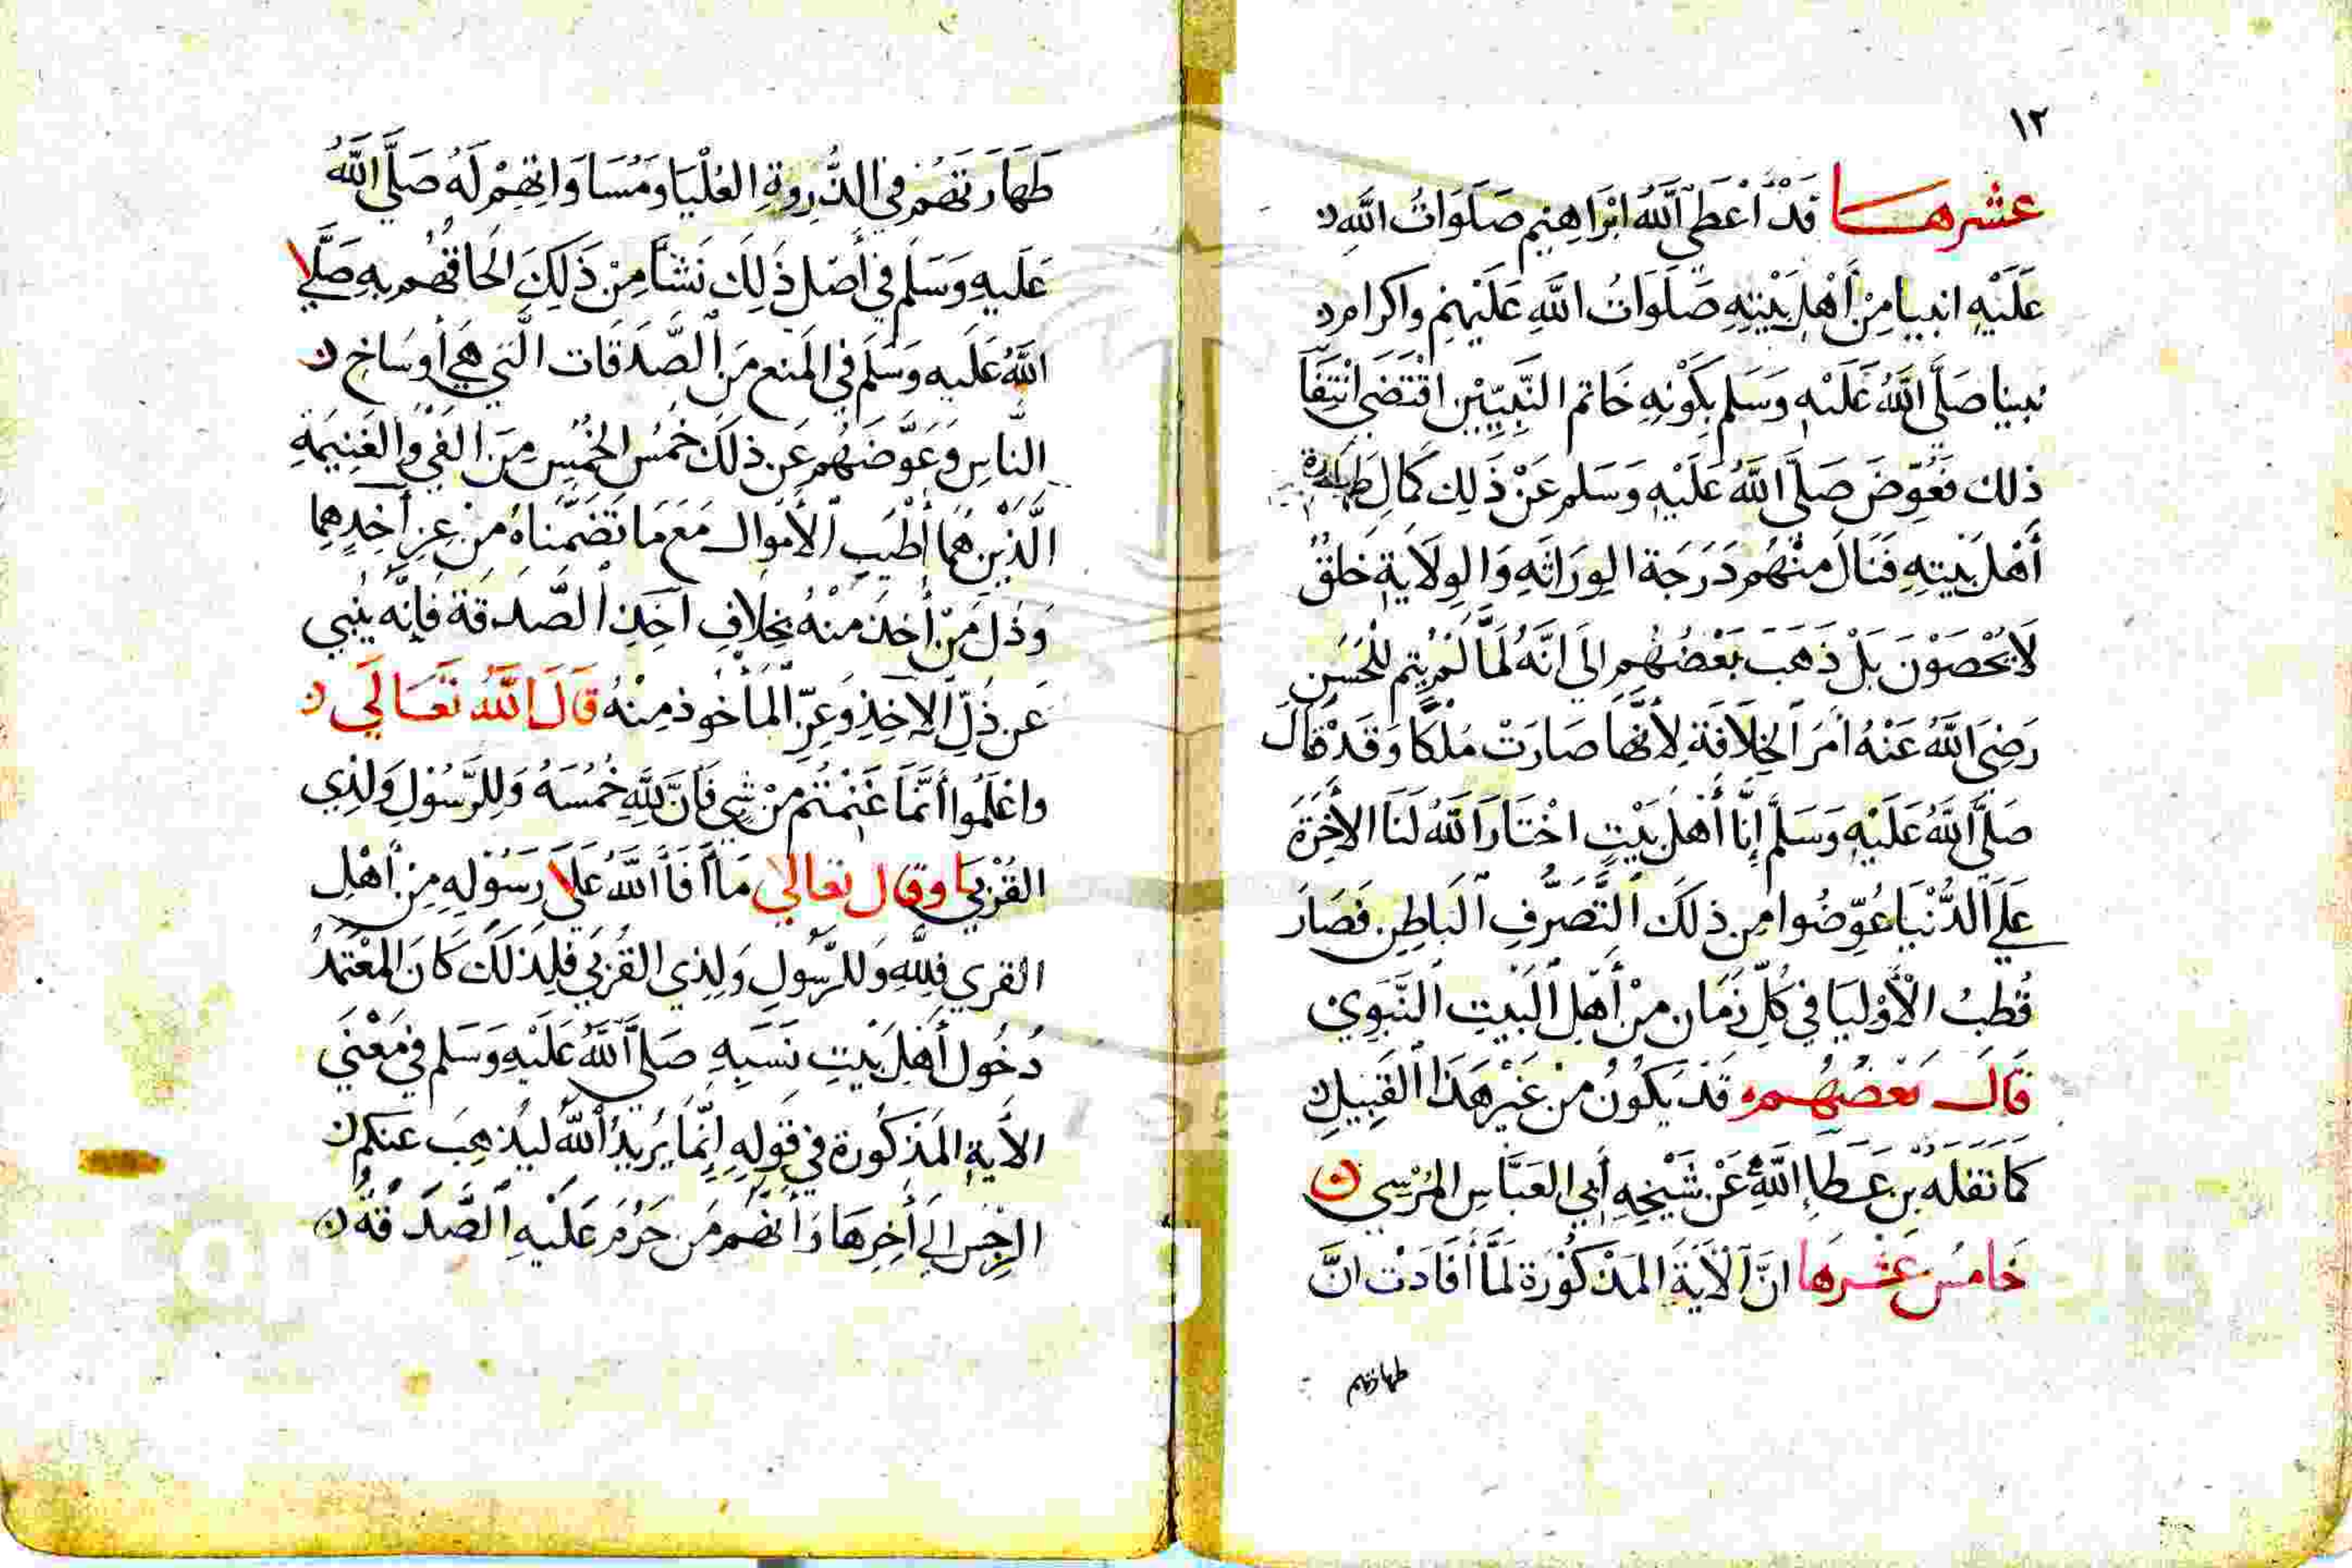 ١٢
عشرها قَدْ أَعْطَى ٱللَّهُ ابْرَاهِيم صَلَوَاتُ اللَّهِ
عَلَيْهِ انبيا مِنْ أَهْلِ بَيْتِهِ صَلَوَاتُ اللَّهِ عَلَيْهِمْ واكرام
نبينا صَلَّى اللَّهُ عَلَيْهِ وَسَلم بِكَوْنِهِ خَاتم النَّبِيِّيْنَ اقْتَضَى انْتِفَآ
ذلك فَعُوِّضَ صَلَّى اللَّهُ عَلَيْهِ وَسَلم عَنْ ذَلِك كَمَالِ طَهارة
أَهْلِ بَيْتِهِ فَنَالَ مِنْهُم دَرَجَة الوِرَاثَهِ وَالوِلَايَةِ خَلقٌ
لَا يُحْصَوْنَ بَلْ ذَهَبَ بَعْضُهُم الَى انَّهُ لَمَّا لَمْ يتم لِلْحَسَنِ
رَضِيَ اللَّهُ عَنْهُ امَرَ الخِلَافَةِ لِأَنَّهَا صَارَتْ مُلْكًا وَقَدْ قَالَ
صَلَّى اللَّهُ عَلَيْهِ وَسَلَّم إِنَّا أَهْلُ بَيْتٍ اخْتَارَ اللَّهُ لَنَا الأَخِرَةَ
عَلَى ٱلدُّنْيَا عُوِّضُوا مِن ذلكَ ٱلتَّصَرُّفِ ٱلبَاطِنِ فَصَارَ
قُطبُ الْأَوْلِيَا فِي كُلِّ زَمَان مِنْ أَهْلِ ٱلْبَيتِ ٱلنَّبَوِي
قَالَ بَعْضُهُم قَدْ يَكُوْنُ مِنْ غَيْرِ هَذَا ٱلقَبِيلِ
كَمَا نَقَلَهُ بن عَطَاءِ اللَّهُ عَنْ شَيْخِهِ أَبِي العَبَّاسِ المُرْسِي
خَامِسُ عَشْرَهَا انَّ ٱلْأَيَةَ المَذْكُوْرَة لَمَّا أَفَادَتْ انَّ
طهارتهم
طَهَارَتَهُمْ فِي الذُّرِوةِ العُلْيَا ومُسَاوَاتِهِمْ لَهُ صَلَّى اللَّهُ
عَلَيهِ وَسَلَم فِي أَصْلِ ذَلِكَ نَشَأَ مِنْ ذَلِكَ الحَاقُهُم بِهِ صَلَّى
اللَّهُ عَلَيه وَسَلَمَ فِي المَنعِ مَنَ ٱلصَّدَقَات الَّتِي هِيَ أَوسَاخ
النَّاسِ وَعَوَّضَهُم عَن ذلكَ خُمُسُ الخُمُسِ مِنَ الفَيْ وَالغَنِيمَةِ
الَّذَيْنِ هُمَا أَطْيَبِ ٱلأَمْوَال مَعَ مَا تَضَمَّنَاهُ مِنْ عِزِ آخِذِهِمَا
وَذُلَ مَنْ أُخِذَ مِنْهُ بِخِلَافِ آخِذِ ٱلصَّدقَةَ فَإِنَّه يُنْبِي
عَن ذُلِّ ٱلآخِذِ وَعِزِّ ٱلْمَأْخُوذ مِنْهُ قَالَ اللَّهُ تَعَالَى
واعْلَمُوا أَنَّمَا غَنِمْتُم مِنْ شي فَأَنَّ لِلَّهِ خُمُسَهُ وَلِلرَّسُوْلِ وَلِذِي
القُرْبَى وقال تعالى مَا أَفَآ اللَّهُ عَلَى رَسُوْلِهِ مِن أَهْلِ
القرى فلِلَّهِ وَللرَّسُولِ وَلِذِي القُرْبَى فلِذَلكَ كَانَ المُعْتَمَدُ
دُخُول أَهِلَ بَيْتِ نَسَبِهِ صَلَّى ٱللَّهُ عَلَيْهِ وَسَلم فِي مَعْنَى
الأَيةِ المَذكُورة فِي قَولِهِ إِنَّمَا يُرِيدُ ٱللَّهُ لِيُذهِبَ عَنكم
الرِّجْسَ الَى أَخِرِهَا وَأَنَّهُم مَن حَرُمَ عَلَيْهِ ٱلصَّدَقَةُ